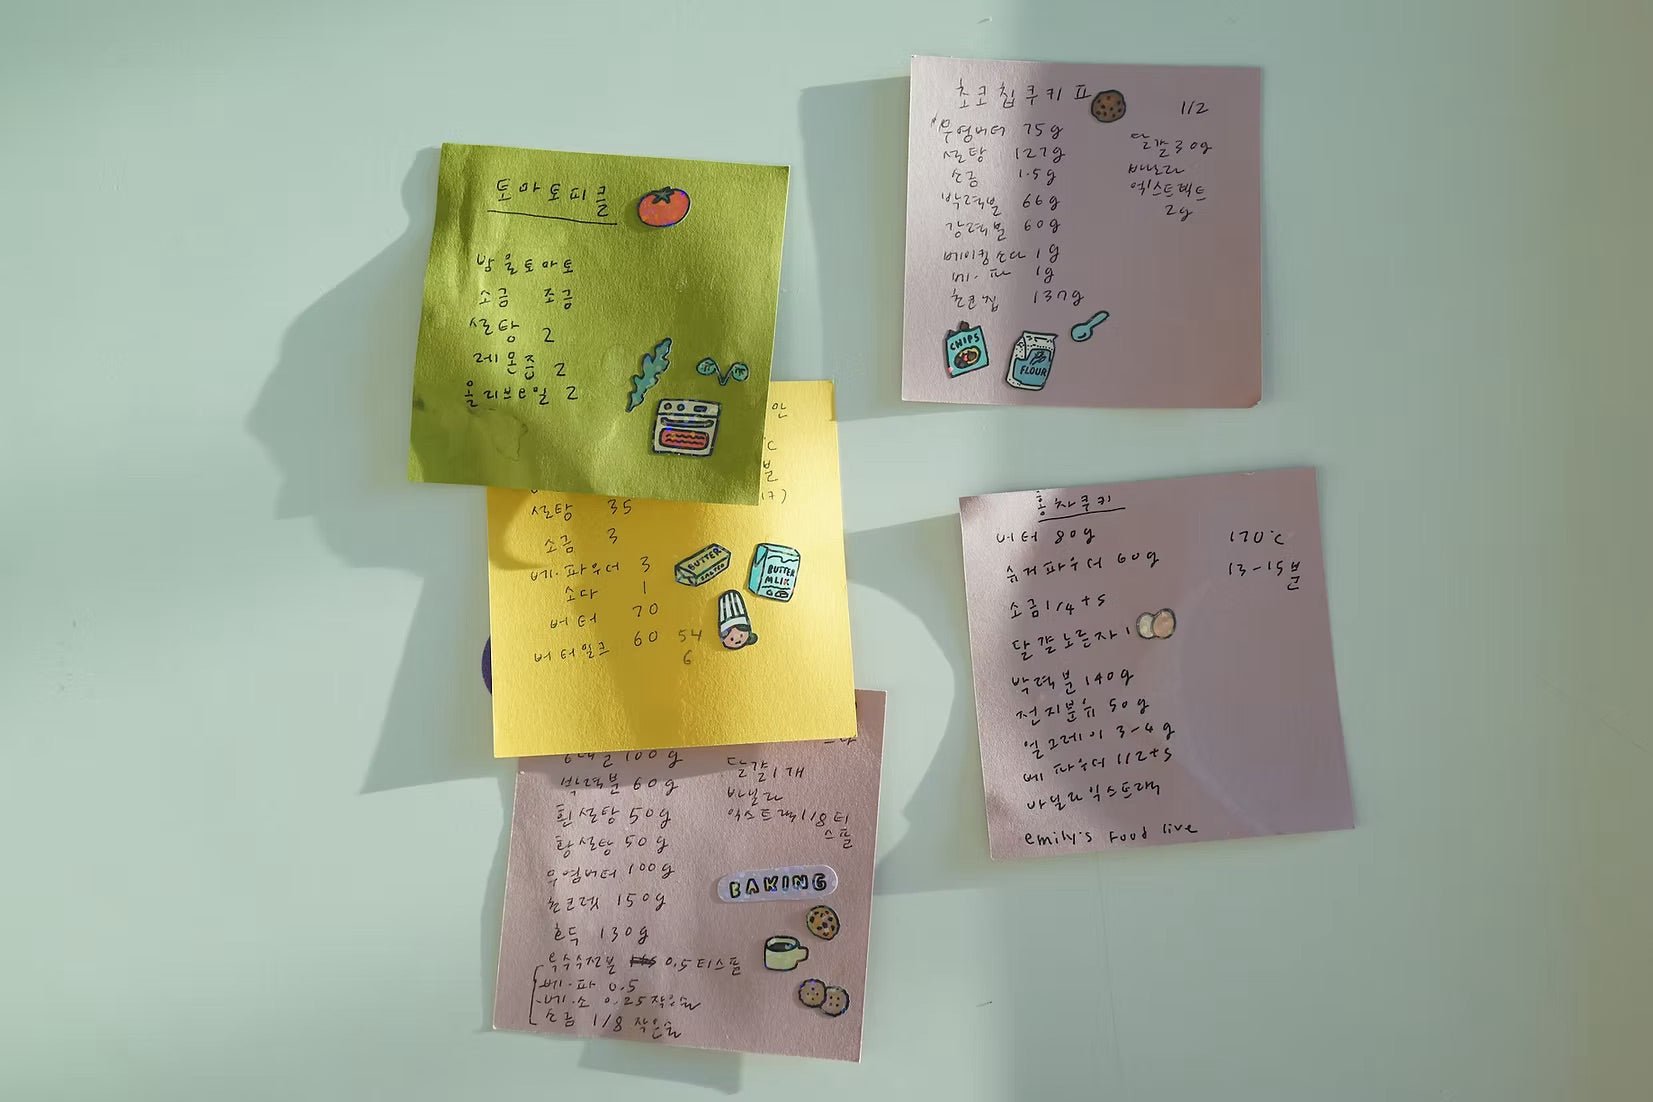 토마토피클
방울토마토
소금 조금
설탕 2
레몬즙 2
올리브오일 2
안
℃
분
17)
설탕 35
소금 3
베.파우더 3
소다 1
버터 70
버터밀크 60 54
6
BUTTER
SALTED
BUTTER
MLIK
100g
박력분 60g
흰설탕 50g
황설탕 50g
우염버터 100g
초코렛 150g
호두 130g
옥수수전분 0.5티스푼
베.파 0.5
베.소 0.25작은술
소금 1/8 작은술
달걀 1개
바닐라
익스트랙 1/8티
스푼
BAKING
초코칩쿠키 표
1/2
우염버터 75g
설탕 127g
소금 1.5g
박력분 66g
강력분 60g
베이킹소다 1g
베.파 1g
초코칩 137g
달걀 30g
바닐라
익스트랙트
2g
CHIPS
FLOUR
홍차쿠키
버터 80g
슈거파우더 60g
소금 1/4+s
달걀노른자 1
박력분 140g
전지분유 50g
얼그레이 3-4g
베파우더 1/2+s
바닐라익스트랙
emily's Food live
170℃
13-15분